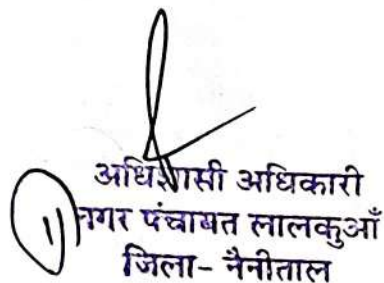 अधिशासी अधिकारी
नगर पंचायत लालकुआँ
जिला- नैनीताल